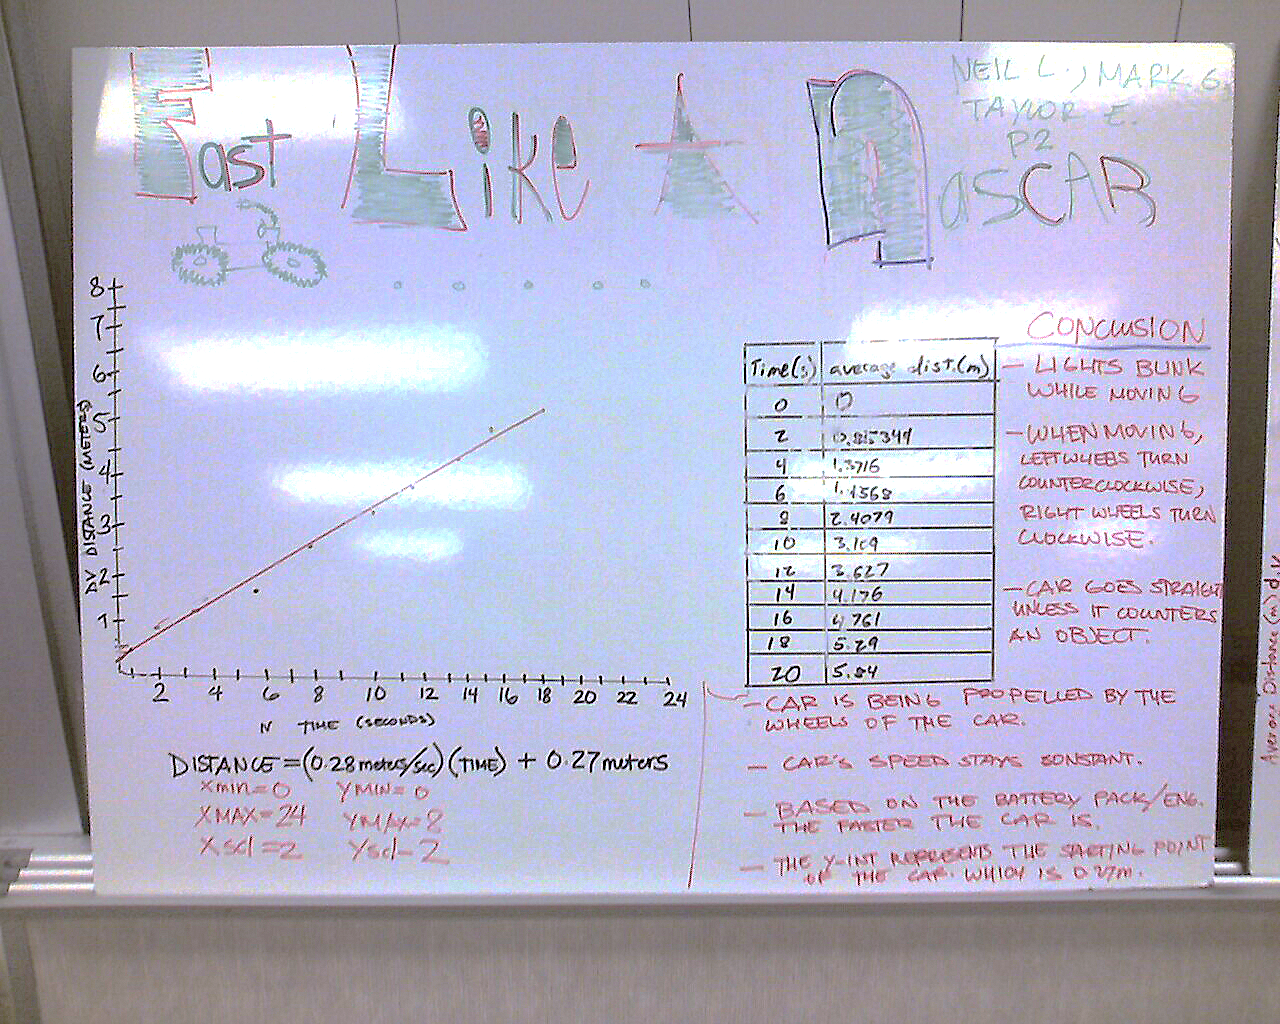 Fast Like A nascar
NEIL L., MARK G.
TAYLOR E.
P2
8
7
6
5
4
3
2
1
DV DISTANCE (METERS)
2 4 6 8 10 12 14 16 18 20 22 24
IV TIME (SECONDS)
DISTANCE = (0.28 meters/sec) (TIME) + 0.27 meters
Xmin = 0 YMIN = 0
XMAX = 24 YMAX = 8
Xscl = 2 Yscl = 2
Time(s) average dist.(m)
0 0
2
4 1.3716
6
8 2.4079
10 3.109
12 3.627
14 4.176
16 4.761
18 5.29
20 5.84
CONCLUSION
- LIGHTS BLINK
WHILE MOVING
- WHEN MOVING,
LEFT WHEELS TURN
COUNTERCLOCKWISE,
RIGHT WHEELS TURN
CLOCKWISE.
- CAR GOES STRAIGHT
UNLESS IT COUNTERS
AN OBJECT.
- CAR IS BEING PROPELLED BY THE
WHEELS OF THE CAR.
- CAR'S SPEED STAYS CONSTANT.
- BASED ON THE BATTERY PACK/ENG.
THE FASTER THE CAR IS.
- THE Y-INT REPRESENTS THE STARTING POINT
OF THE CAR. WHICH IS 0.27m.
Average Distance (m)